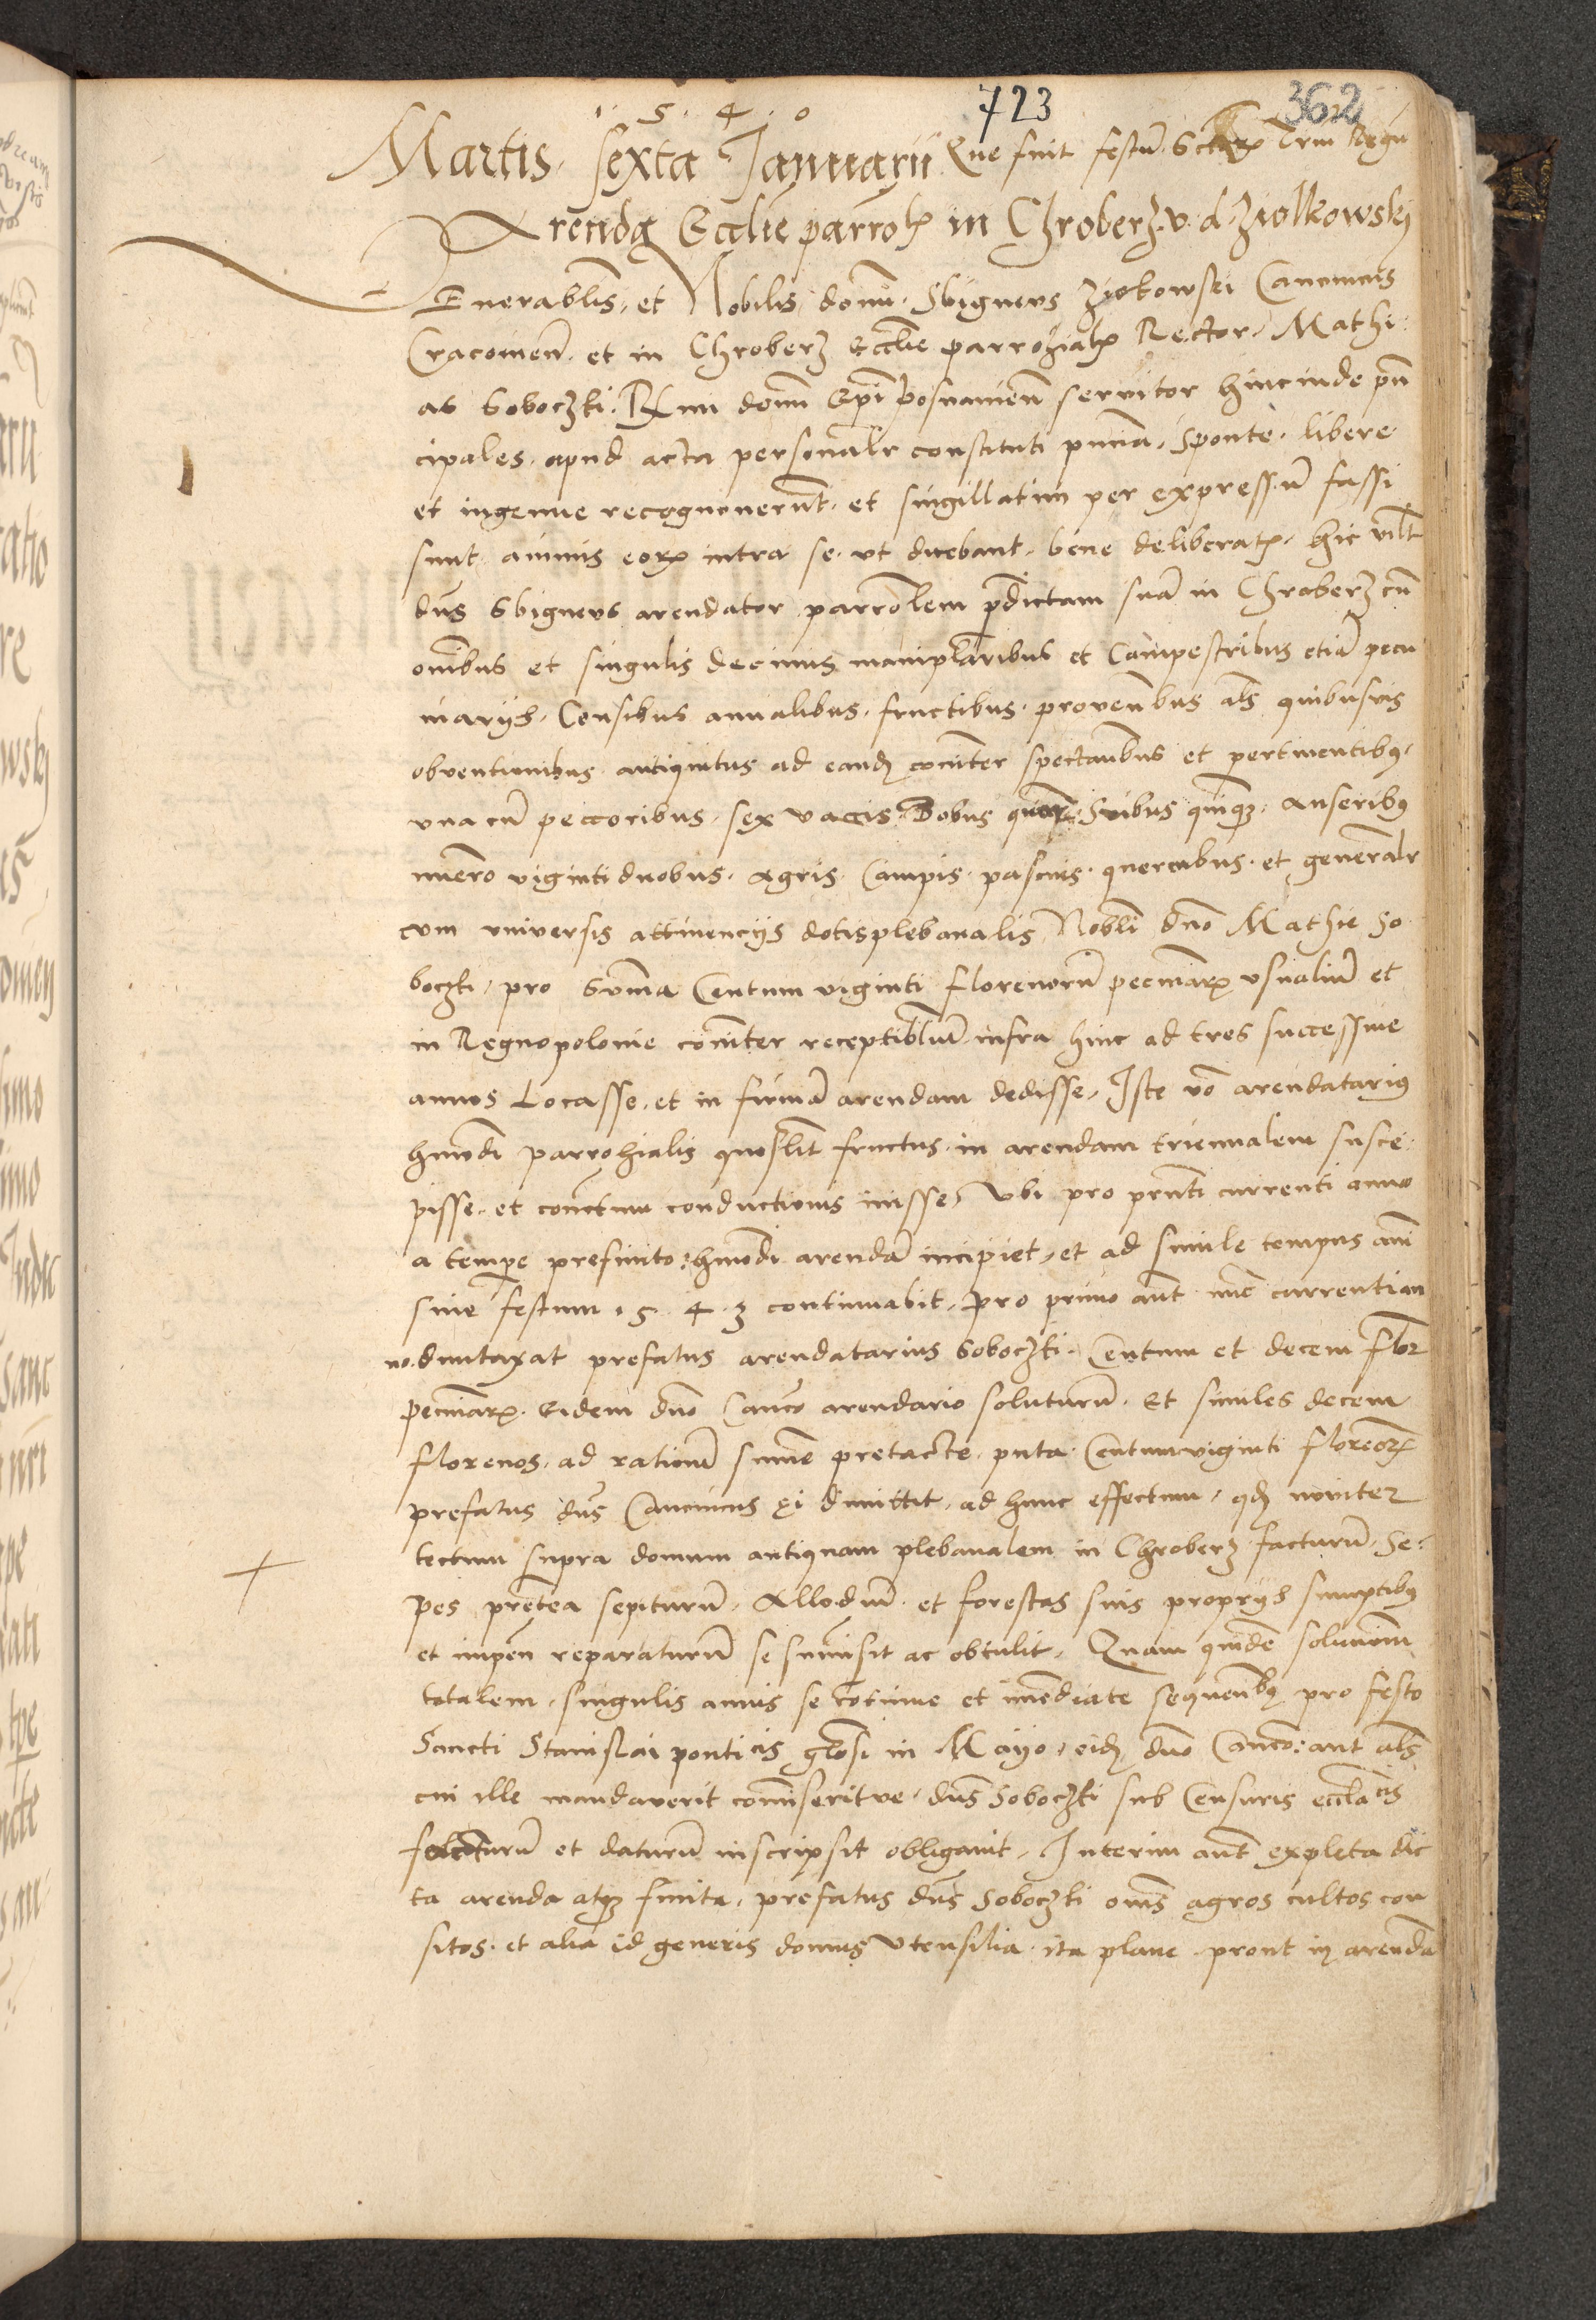 723 362
1 5 4 0
Martis sexta Januarii Que fuit festū Sctorȝ Triū Regū
Arenda Ecclie parroh in Chroberz v. d. Ziolkowskj
Enerablis et Nobilis domī Sbigneus Ziolkowski Canonicus
Cracovien̄ et in Chroberz Ecclie parrohialȝ Rector Mathi:
as Soboczki R̄mi domī Epī posnanien̄ servitor hincinde prin
cipales apud acta personalr constituti pūncia sponte libere
et ingenue recognoverunt et singillatim per expressū fassi
sunt animis eorȝ intra se ut dicebant bene deliberatȝ hic vilt
dn̄s Sbigneus arendator parrohlem prēdictam suā in Chroberz cū
om̄ibus et singulis decimis manipularibus et Campestribus etiā pecu
niariis Censibus annalibus fructibus provenībus als quibusvis
obventionibus antiquitus ad eandȝ com̄iter spectan̄bus et pertinentibus
una cū peccoribus sex vaccis Bobus Suibus quīqȝ Anseribus
numero vigintiduobus agris Campis pascuis quercubus et generalr
cum universis attinenciis dotisplebanalis Nobli dn̄o Mathie So
boczki pro Summa Centum viginti florenorū pecuniarȝ usualiū et
in Regnopolonie com̄iter receptibliū infra hinc ad tres successive
annos Locasse et in firmā arendam dedisse Iste vo arendatarius
hm̄odi parrohialis quoslit fructus in arendam triennalem susce
pisse et con̄ctum conductionis inisse Ubi pro prn̄ti currenti anno
a tempe prefinito hm̄odi arendā incipiet et ad simile tempus anni
sive festum 1 5 4 3 continuabit pro primo aut nūc currenti an
no duntaxat prefatus arendatarius Soboczki Centum et decem flor
pecuniarȝ Eidem dn̄o Can̄co arendario soluturū Et similes decem
florenos ad rationē summe pretacte puta Centumviginti florenorȝ
prefatus dn̄s Canonicus ei dimittit ad hunc effectum qdȝ noviter
tectum supra domum antiquam plebanalem in Chroberz facturū Se:
pes preterea sepiturū Allodiū et forestas suis propriis sumptibus
et impen̄ reparaturū se sum̄isit ac obtulit Quam quidē solutionem
totalem singulis annis se continue et imediate sequen̄bus pro festo
Sancti Stanislai pontificis gl̄osi in Mayo eidȝ dn̄o Can̄co: aut als
cui ille mandaverit com̄iseritve dn̄s Soboczki sub Censuris eccl̄acis
soluturū et daturū inscripsit obligavit Interim aut expleta dic
ta arenda atqȝ finita prefatus dn̄s Soboczki omēs agros cultos con
sitos et alia id generis domus Utensilia ita plane prout in arendā